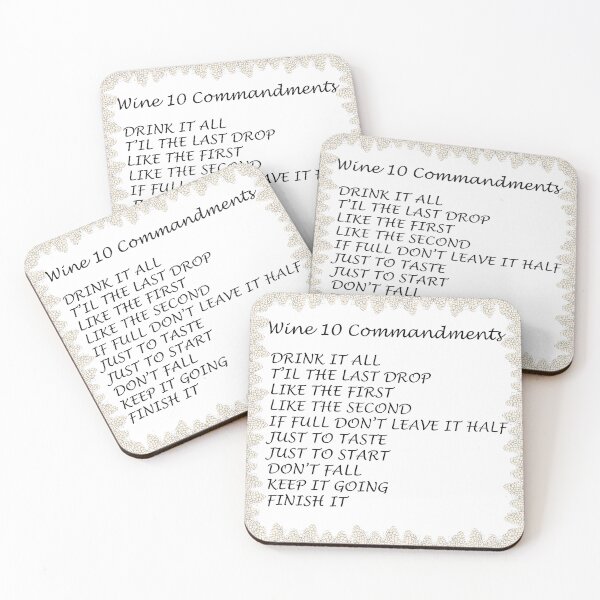 Wine 10 Commandments
DRINK IT ALL
T'IL THE LAST DROP
LIKE THE FIRST
LIKE THE SECOND
IF FULL LEAVE IT
Wine 10 Commandments
DRINK IT ALL
T'IL THE LAST DROP
LIKE THE FIRST
LIKE THE SECOND
IF FULL DON'T LEAVE IT HALF
JUST TO TASTE
JUST TO START
DON'T FALL
Wine 10 Commandments
DRINK IT ALL
T'IL THE LAST DROP
LIKE THE FIRST
LIKE THE SECOND
IF FULL DON'T LEAVE IT HALF
JUST TO TASTE
JUST TO START
DON'T FALL
KEEP IT GOING
FINISH IT
Wine 10 Commandments
DRINK IT ALL
T'IL THE LAST DROP
LIKE THE FIRST
LIKE THE SECOND
IF FULL DON'T LEAVE IT HALF
JUST TO TASTE
JUST TO START
DON'T FALL
KEEP IT GOING
FINISH IT